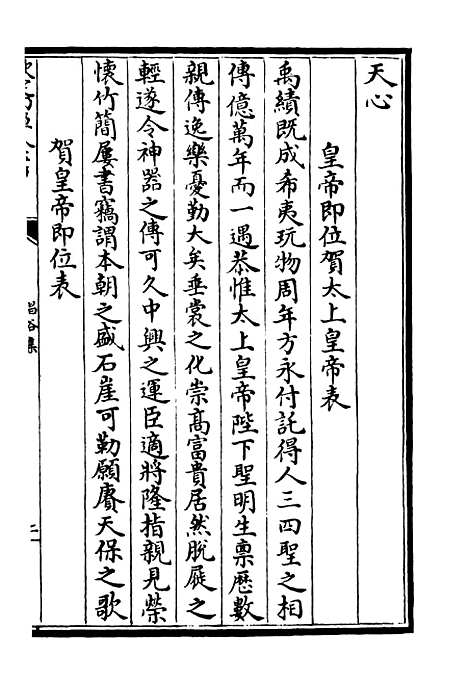 天心
皇帝即位賀太上皇帝表
禹績既成希夷玩物周年方永付託得人三四聖之相
傳億萬年而一遇恭惟太上皇帝陛下聖明生禀歴數
親傳逸樂憂勤大矣垂裳之化崇髙富貴居然脱屣之
輕遂令神器之傳可久中興之運臣適將隆指親見榮
懷竹簡屢書竊謂本朝之盛石崖可勒願賡天保之歌
賀皇帝即位表
昌谷集